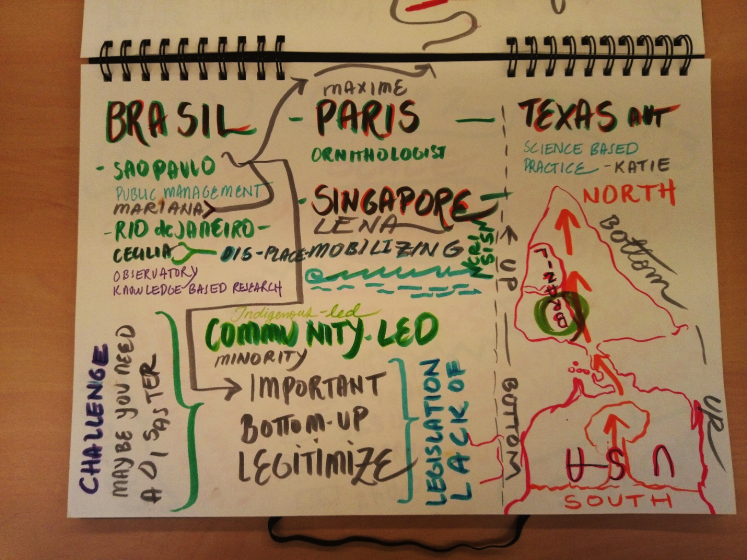 MAXIME
BRASIL
- PARIS -
TEXAS
ORNITHOLOGIST
SCIENCE BASED
PRACTICE - KATIE
- SAO PAULO
PUBLIC MANAGEMENT
MARIANA
- SINGAPORE
LENA
NORTH
Bottom
- RIO de JANEIRO -
CECILIA
DIS-PLACE-MOBILIZING
OBSERVATORY
KNOWLEDGE-BASED RESEARCH
UP
Indigenous-led
COMMUNITY-LED
MINORITY
IMPORTANT
BOTTOM-UP
LEGITIMIZE
CHALLENGE
MAYBE YOU NEED
A DISASTER
LEGISLATION
LACK OF
BOTTOM
UP
USA
SOUTH